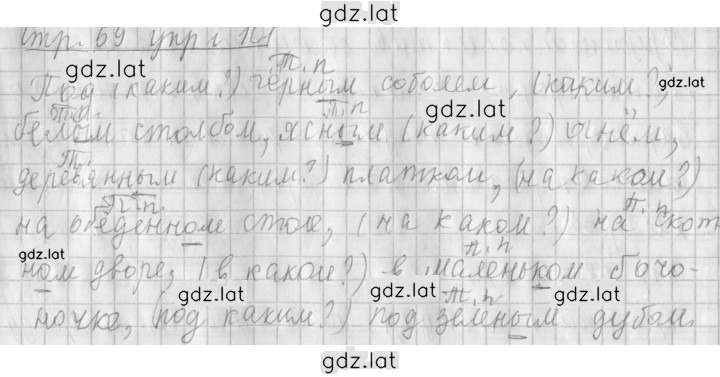 gdz.lat
стр. 69 упр. N1
gdz.lat
Т.п
Под (каким?) чёрным соболем, (каким?)
gdz.lat
П.п. Т.п
gdz.lat
белым столбом, ясным (каким?) огнём,
Т.
деревянным (каким?) платком, (на каком?)
П.п. П.п
на обеденном столе, (на каком?) на скот
gdz.lat
П.п
ном дворе, (в каком?) в маленьком бочо-
gdz.lat gdz.lat gdz.lat
Т.п
ночке, (под каким?) под зелёным дубом.
gdz.lat